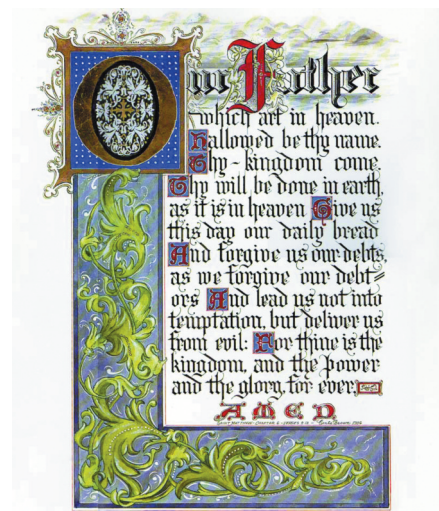 Our Father
which art in heaven.
Hallowed be thy name.
Thy kingdom come.
Thy will be done in earth,
as it is in heaven Give us
this day our daily bread
And forgive us our debts,
as we forgive our debt-
ors And lead us not into
temptation, but deliver us
from evil: For thine is the
kingdom, and the power
and the glory, for ever.
AMEN
SAINT MATTHEW · CHAPTER 6 · VERSES 9-13